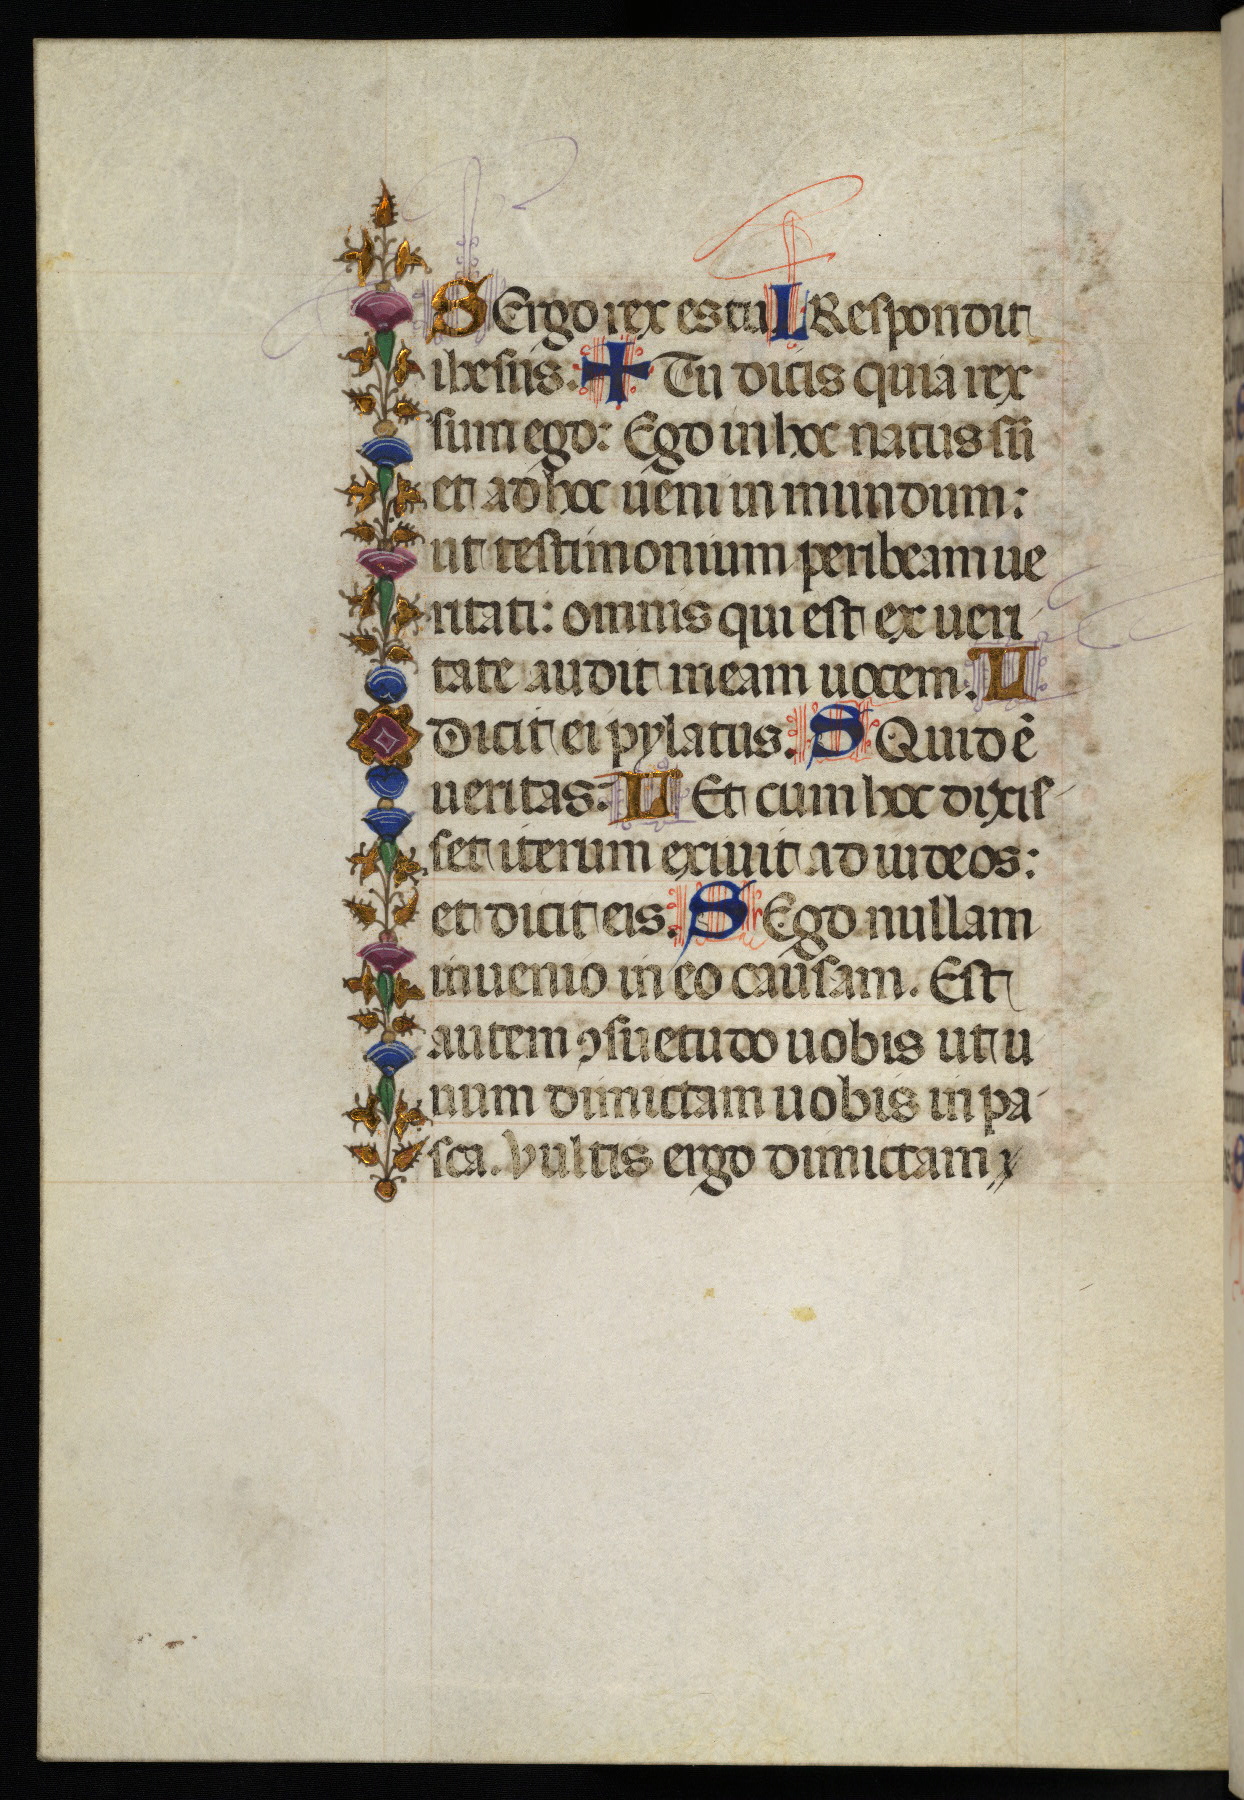 S Ergo rex es tu L Respondit
ihesus. ✚ Tu dicis quia rex
sum ego: Ego in hoc natus sū
et ad hoc ueni in mundum:
ut testimonium peribeam ue
ritati: omnis qui est ex ueri
tate audit meam uocem. U
Dicit ei pylatus. S Quid ē
ueritas. U Et cum hoc dixis
set iterum exiuit ad iudeos:
et dicit eis. S Ego nullam
inuenio in eo causam. Est
autem ꝯsuetudo uobis ut u
num dimictam uobis in pa
sca. Vultis ergo dimictam